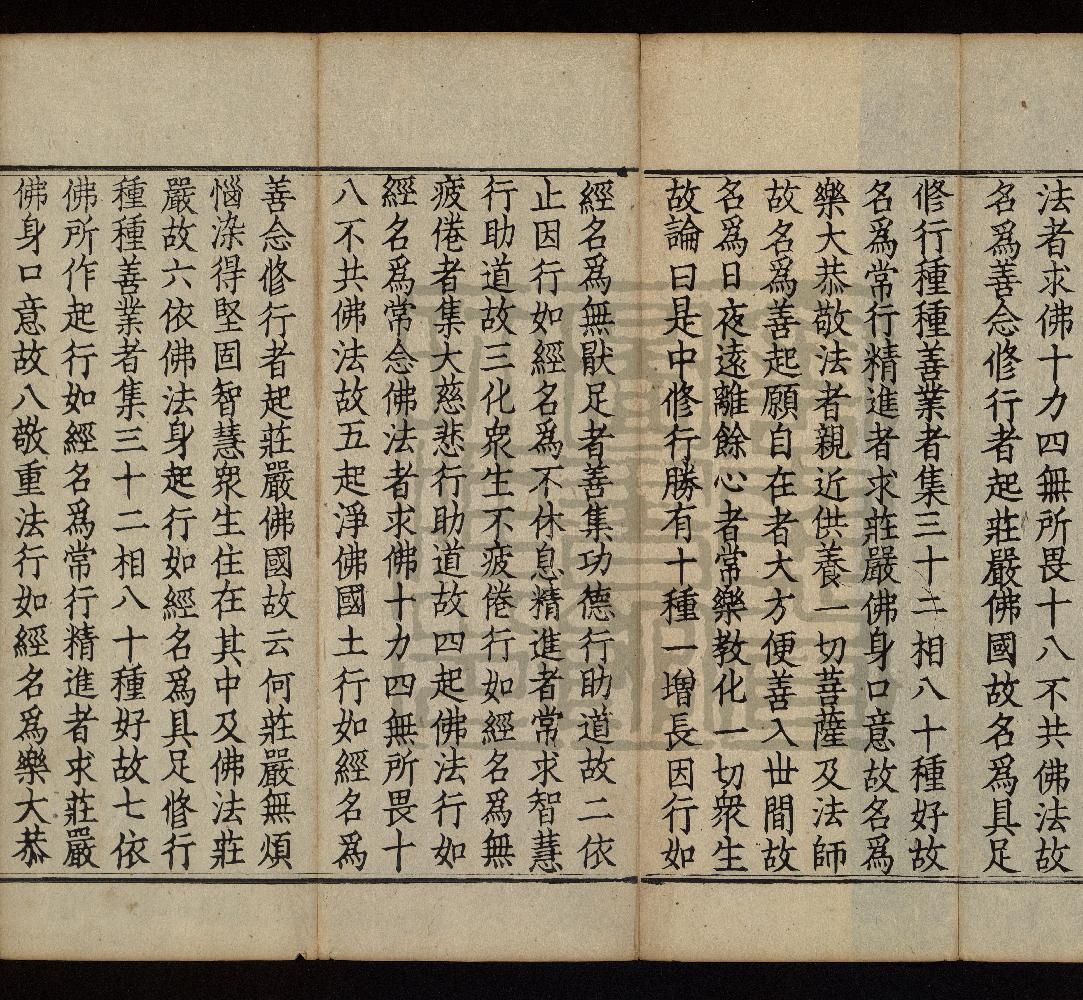 法者求佛十力四無所畏十八不共佛法故
名爲善念修行者起莊嚴佛國故名爲具足
修行種種善業者集三十二相八十種好故
名爲常行精進者求莊嚴佛身口意故名爲
樂大恭敬法者親近供養一切菩薩及法師
故名爲善起願自在者大方便善入世間故
名爲日夜遠離餘心者常樂教化一切衆生
故論曰是中修行勝有十種一增長因行如
經名爲無猒足者善集功德行助道故二依
止因行如經名爲不休息精進者常求智慧
行助道故三化衆生不疲倦行如經名爲無
疲倦者集大慈悲行助道故四起佛法行如
經名爲常念佛法者求佛十力四無所畏十
八不共佛法故五起淨佛國土行如經名爲
善念修行者起莊嚴佛國故云何莊嚴無煩
惱染得堅固智慧衆生住在其中及佛法莊
嚴故六依佛法身起行如經名爲具足修行
種種善業者集三十二相八十種好故七依
佛所作起行如經名爲常行精進者求莊嚴
佛身口意故八敬重法行如經名爲樂大恭